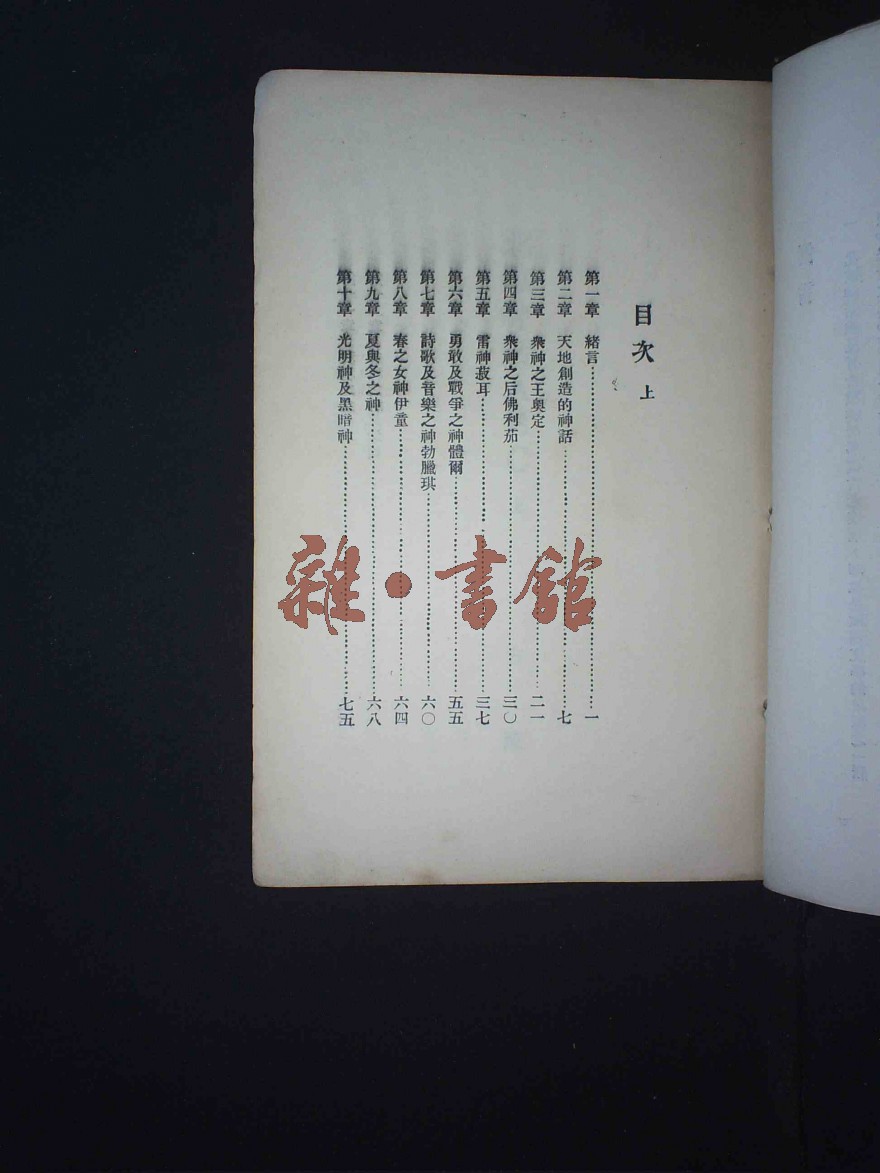 目次 上
第一章 緒言……一
第二章 天地創造的神話……七
第三章 衆神之王奧定……二一
第四章 衆神之后佛利茄……三〇
第五章 雷神菽耳……三七
第六章 勇敢及戰爭之神體爾……五五
第七章 詩歌及音樂之神勃臘琪……六〇
第八章 春之女神伊童……六四
第九章 夏與冬之神……六八
第十章 光明神及黑暗神……七五
雜·書館